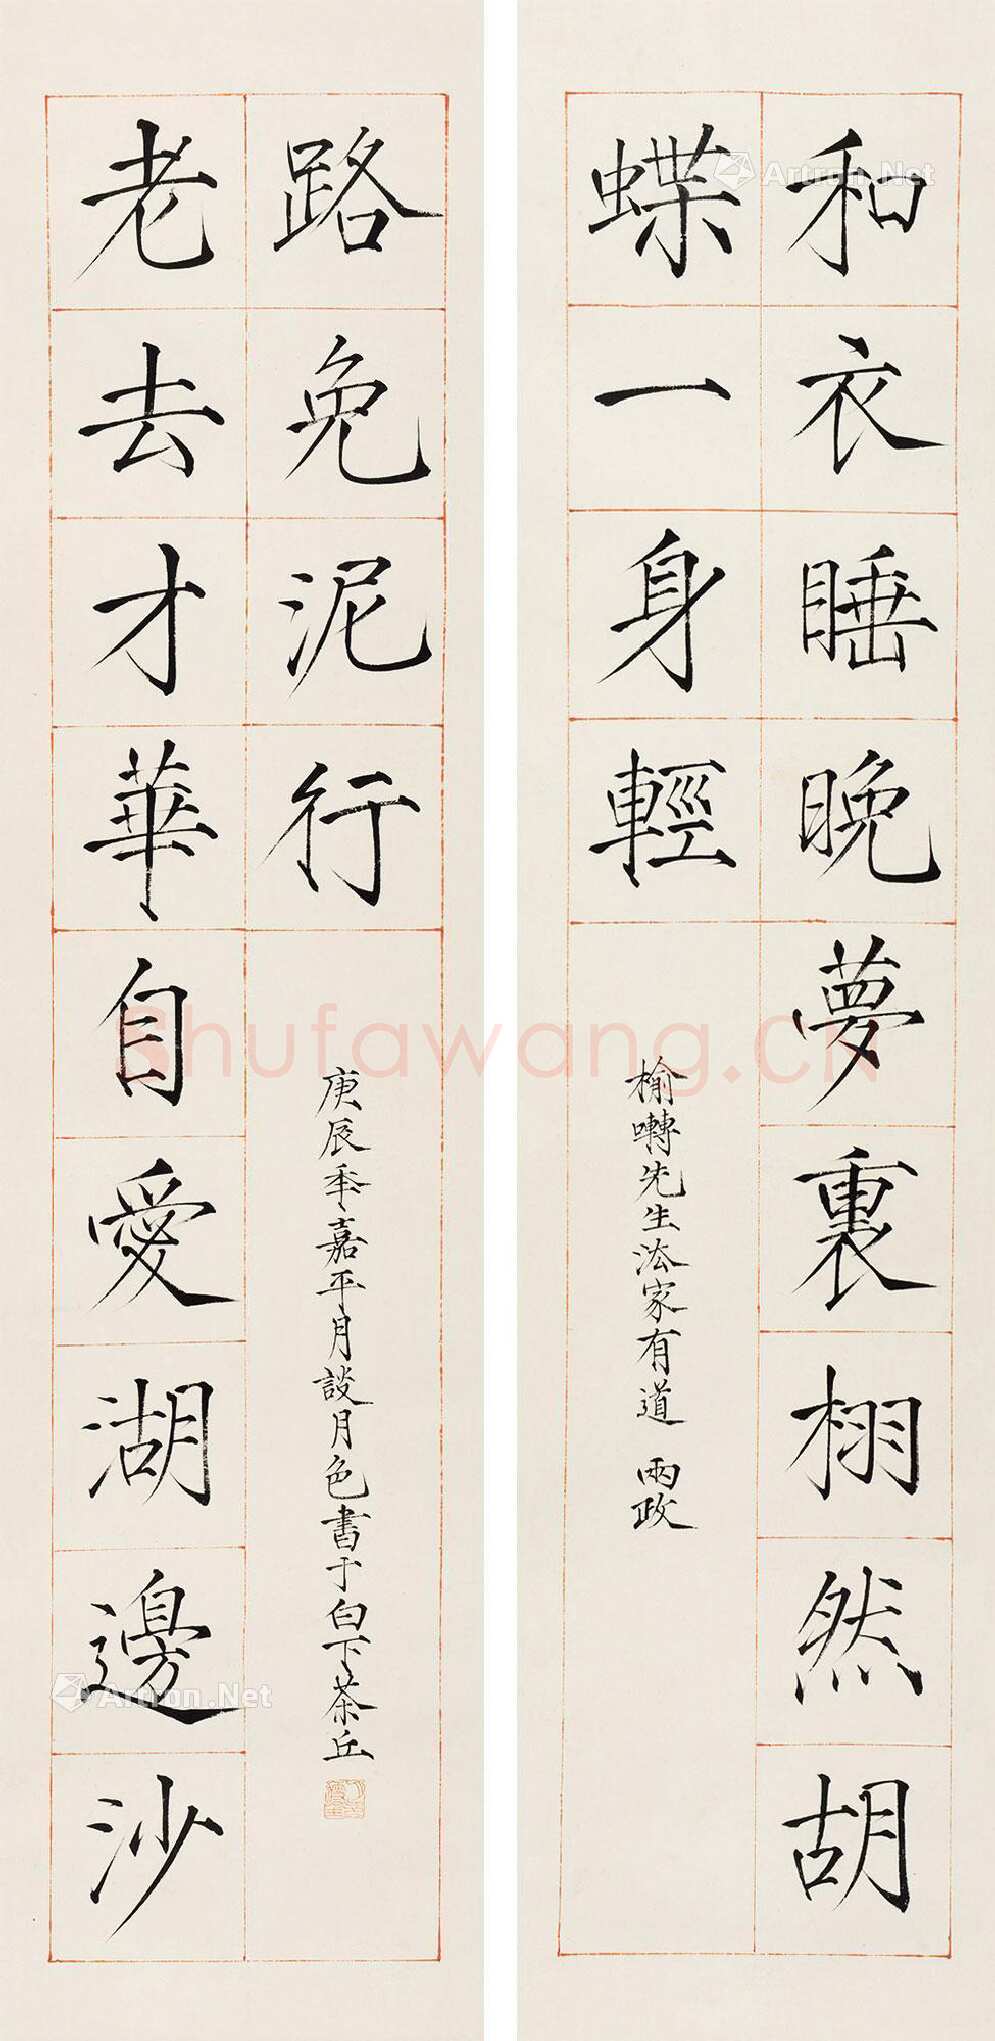 和衣睡晚夢裏栩然胡
蝶一身輕
榆囀先生法家有道 兩政
老去才華自愛湖邊沙
路免泥行
庚辰年嘉平月談月色書于白下茶丘
Artron.Net
Shufawang.CN
Artron.Net